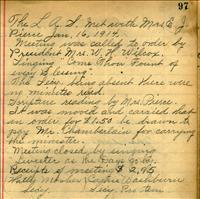 97
The L. A. S. met with Mrs. E. J.
Pierre Jan. 16, 1914.
Meeting was called to order by
President Mrs. W. H. Wilcox.
Singing. Come Thou Fount of
every Blessing.
The Secy. being absent there were
no minutes read.
Scripture reading by Mrs. Pierre.
It was moved and carried that
an order for $1.50 be drawn to
pay Mr. Chamberlain for carrying
the minister.
Meeting closed by singing
Sweeter as the Days go by.
Receipts of meeting $2.95
Washburn
Secy. Secy. Pro tem